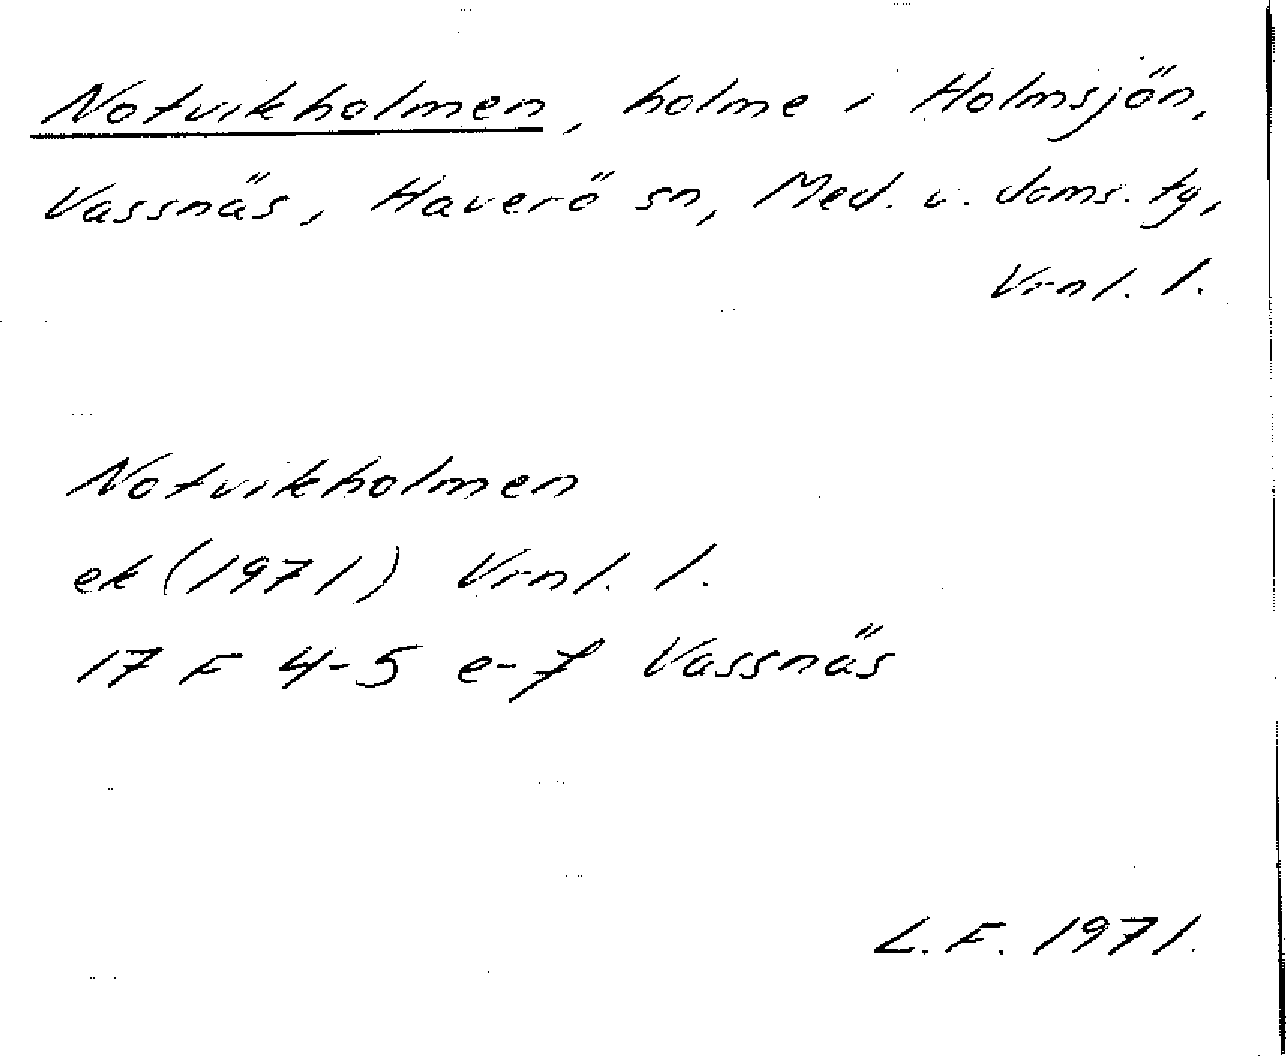 Notvikholmen, holme i Holmsjön,
Vassnäs, Haverö sn, Med. v. doms. tg,
Vrnl. l.
Notvikholmen
ek (1971) Vrnl. l.
17 F 4-5 e-f Vassnäs
L. F. 1971.